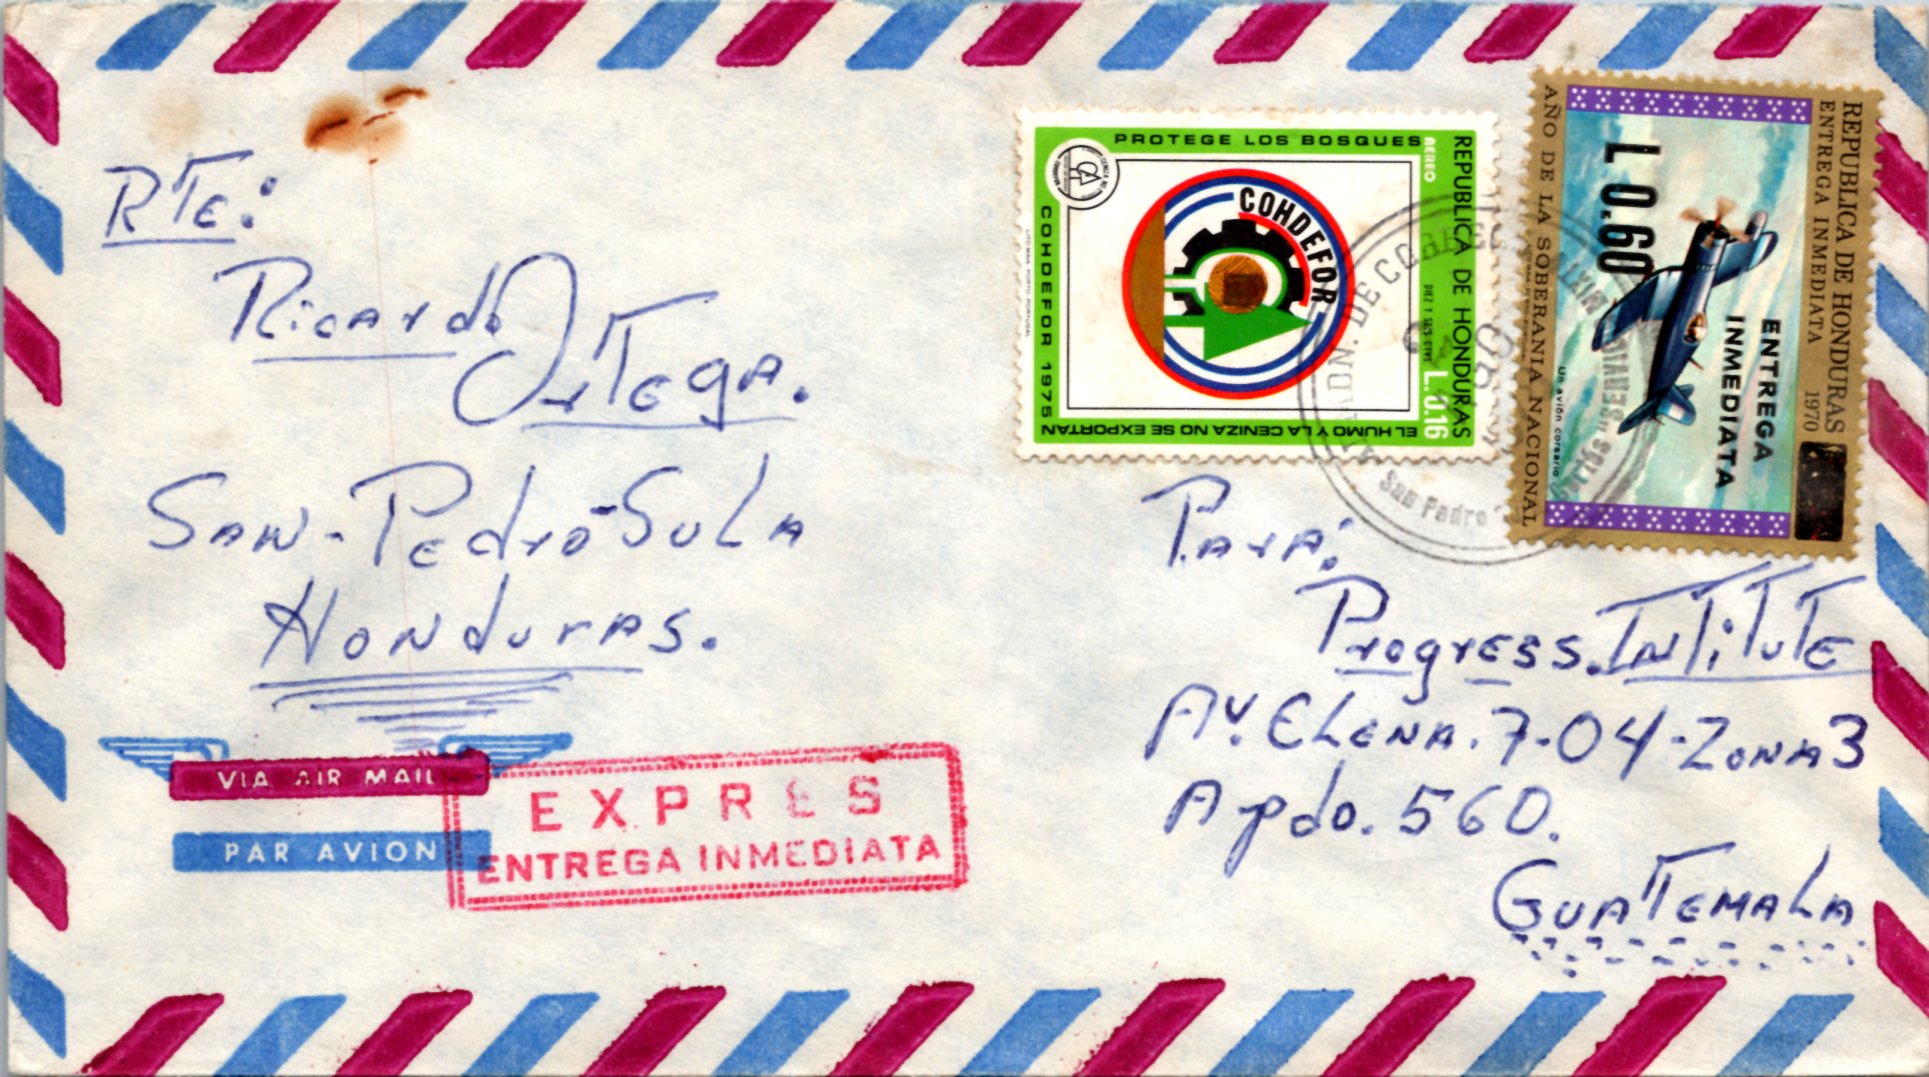 RTE:
Ricardo
Ortega.
San-Pedro-Sula
Honduras.
VIA AIR MAIL
PAR AVION
EXPRES
ENTREGA INMEDIATA
PROTEGE LOS BOSQUES
REPUBLICA DE HONDURAS
AEREO
DIEZ Y SEIS CTVS
L.0.16
COHDEFOR
COHDEFOR 1975
EL HUMO Y LA CENIZA NO SE EXPORTAN
LITO MAIA PORTO PORTUGAL
REPUBLICA DE HONDURAS
ENTREGA INMEDIATA 1970
L 0.60
ENTREGA
INMEDIATA
Un avión corsario
AÑO DE LA SOBERANIA NACIONAL
ADON. DE CORREOS
San Pedro
Para:
Progress. IntiTuTE
Av. Elena. 7-04-Zona 3
Apdo. 560.
Guatemala